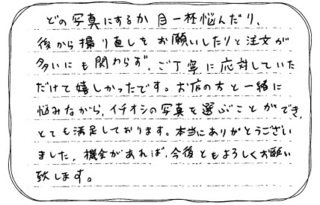 どの写真にするか目一杯悩んだり、
後から撮り直しをお願いしたりと注文が
多いにも関わらず、ご丁寧に応対していた
だけて嬉しかったです。お店の方と一緒に
悩みながら、イチオシの写真を選ぶことができ、
とても満足しております。本当にありがとうござい
ました。機会があれば、今後ともよろしくお願い
致します。